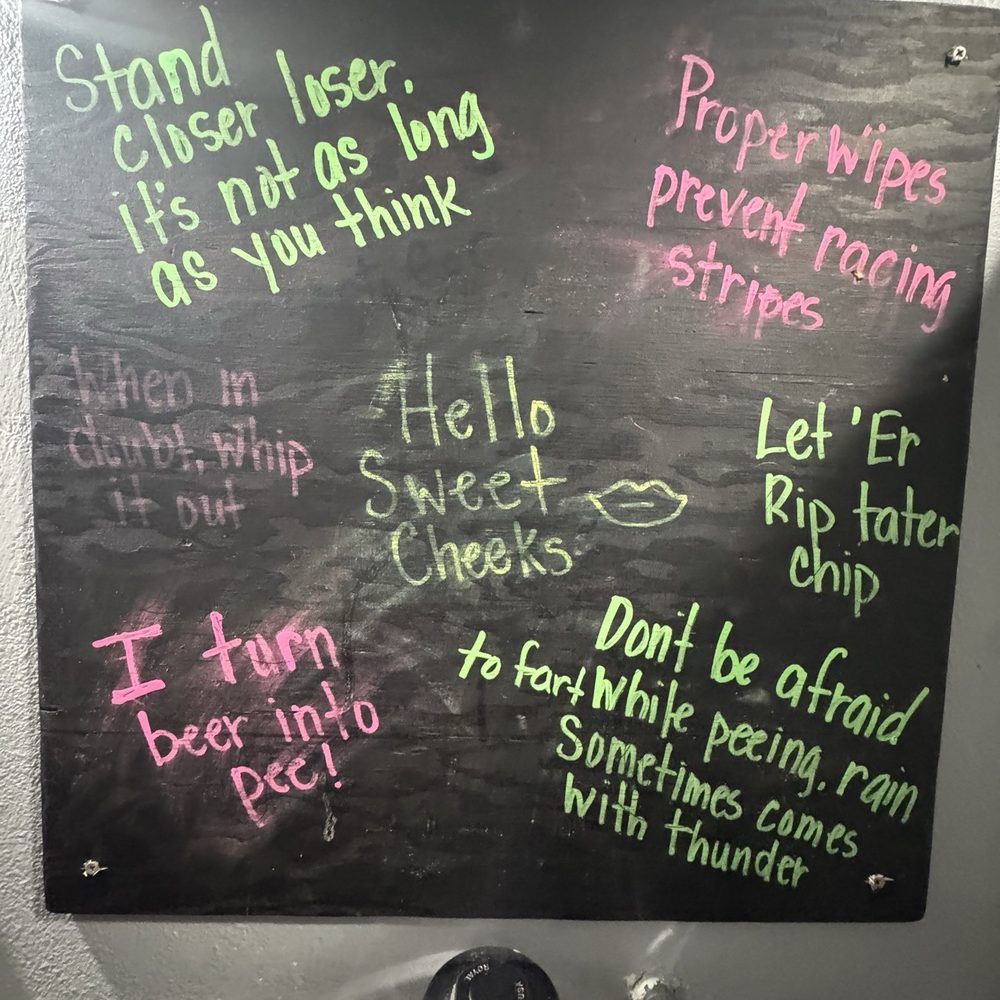 Stand
closer loser.
it's not as long
as you think
Proper Wipes
prevent racing
stripes
When in
doubt, whip
it out
Hello
Sweet
Cheeks
Let 'Er
Rip tater
chip
I turn
beer into
pee!
Don't be afraid
to fart while peeing, rain
Sometimes comes
with thunder
ROYAL
USA